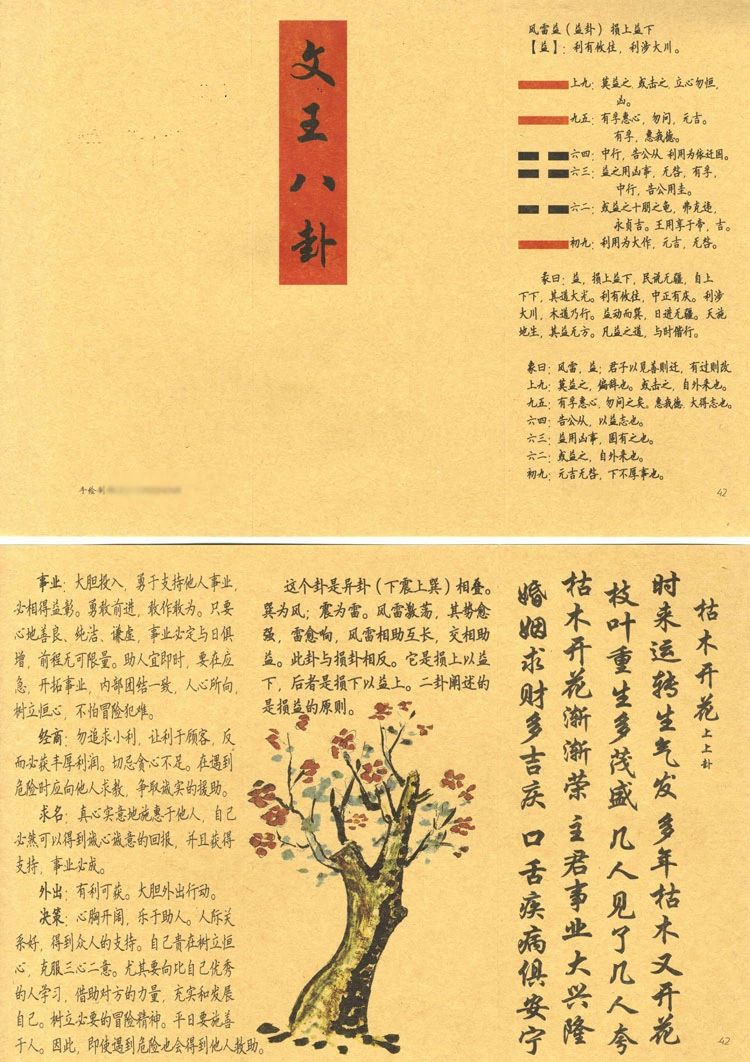 文王八卦
风雷益（益卦）损上益下
【益】：利有攸往，利涉大川。
上九：莫益之，或击之，立心勿恒，
凶。
九五：有孚惠心，勿问，元吉。
有孚，惠我德。
六四：中行，告公从，利用为依迁国。
六三：益之用凶事，无咎，有孚，
中行，告公用圭。
六二：或益之十朋之龟，弗克违，
永贞吉。王用享于帝，吉。
初九：利用为大作，元吉，无咎。
彖曰：益，损上益下，民说无疆，自上
下下，其道大光。利有攸往，中正有庆。利涉
大川，木道乃行。益动而巽，日进无疆。天施
地生，其益无方。凡益之道，与时偕行。
象曰：风雷，益；君子以见善则迁，有过则改
上九：莫益之，偏辞也。或击之，自外来也。
九五：有孚惠心，勿问之矣。惠我德，大得志也。
六四：告公从，以益志也。
六三：益用凶事，固有之也。
六二：或益之，自外来也。
初九：元吉无咎，下不厚事也。
手绘制
42
事业：大胆投入，勇于支持他人事业，
必相得益彰。勇敢前进，敢作敢为。只要
心地善良、纯洁、谦虚，事业必定与日俱
增，前程无可限量。助人宜即时，要在应
急，开拓事业，内部团结一致，人心所向，
树立恒心，不怕冒险犯难。
经商：勿追求小利，让利于顾客，反
而必获丰厚利润。切忌贪心不足。在遇到
危险时应向他人求教，争取诚实的援助。
求名：真心实意地施惠于他人，自己
必然可以得到诚心诚意的回报，并且获得
支持，事业必成。
外出：有利可获。大胆外出行动。
决策：心胸开阔，乐于助人。人际关
系好，得到众人的支持。自己贵在树立恒
心，克服三心二意。尤其要向比自己优秀
的人学习，借助对方的力量，充实和发展
自己。树立必要的冒险精神。平日要施善
于人。因此，即使遇到危险也会得到他人救助。
这个卦是异卦（下震上巽）相叠。
巽为风；震为雷。风雷激荡，其势愈
强，雷愈响，风雷相助互长，交相助
益。此卦与损卦相反。它是损上以益
下，后者是损下以益上。二卦阐述的
是损益的原则。
枯木开花 上上卦
时来运转生气发 多年枯木又开花
枝叶重生多茂盛 几人见了几人夸
枯木开花渐渐荣 主君事业大兴隆
婚姻求财多吉庆 口舌疾病俱安宁
42